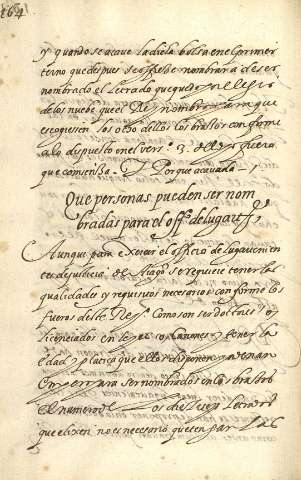 164
y quando se acave la dicha bolsa en el primer
terno que despues se offreçe nombrar a de ser
nombrado el Letrado que quedo en
de los nuebe que el Rey nombrara
escogiesen los otso dellos los braços conforme
a lo dispuesto en el vers. 3. fuera
que comienza. Porque acavado
Que personas pueden ser nom
bradas para el off.º de lugart.e
Aunque para exercer el officio de lugartenien
te de justicia de Arago se requiere tener las
qualidades y requisitos necesarios conforme los
fueros deste Reyº. Como son ser doctores o
licenciados en leyes o canones y tener la
edad y platica que ellos disponen
Empero para ser nombrados en los braços
el numero de los diez y seys Letrados
que elixen no es necesario que en